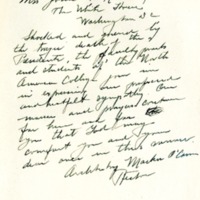 Mrs John
The White House
Washington D C
Shocked and grieved by
the tragic death of the
President, the faculty priests
and students of the North
American College join in
in expressing our profound
and heartfelt sympathy. Our
masses and prayers continue
for him and for
you that God may
comfort you and your
dear ones in this sorrow.
Archbishop Martin O'Connor
Rector